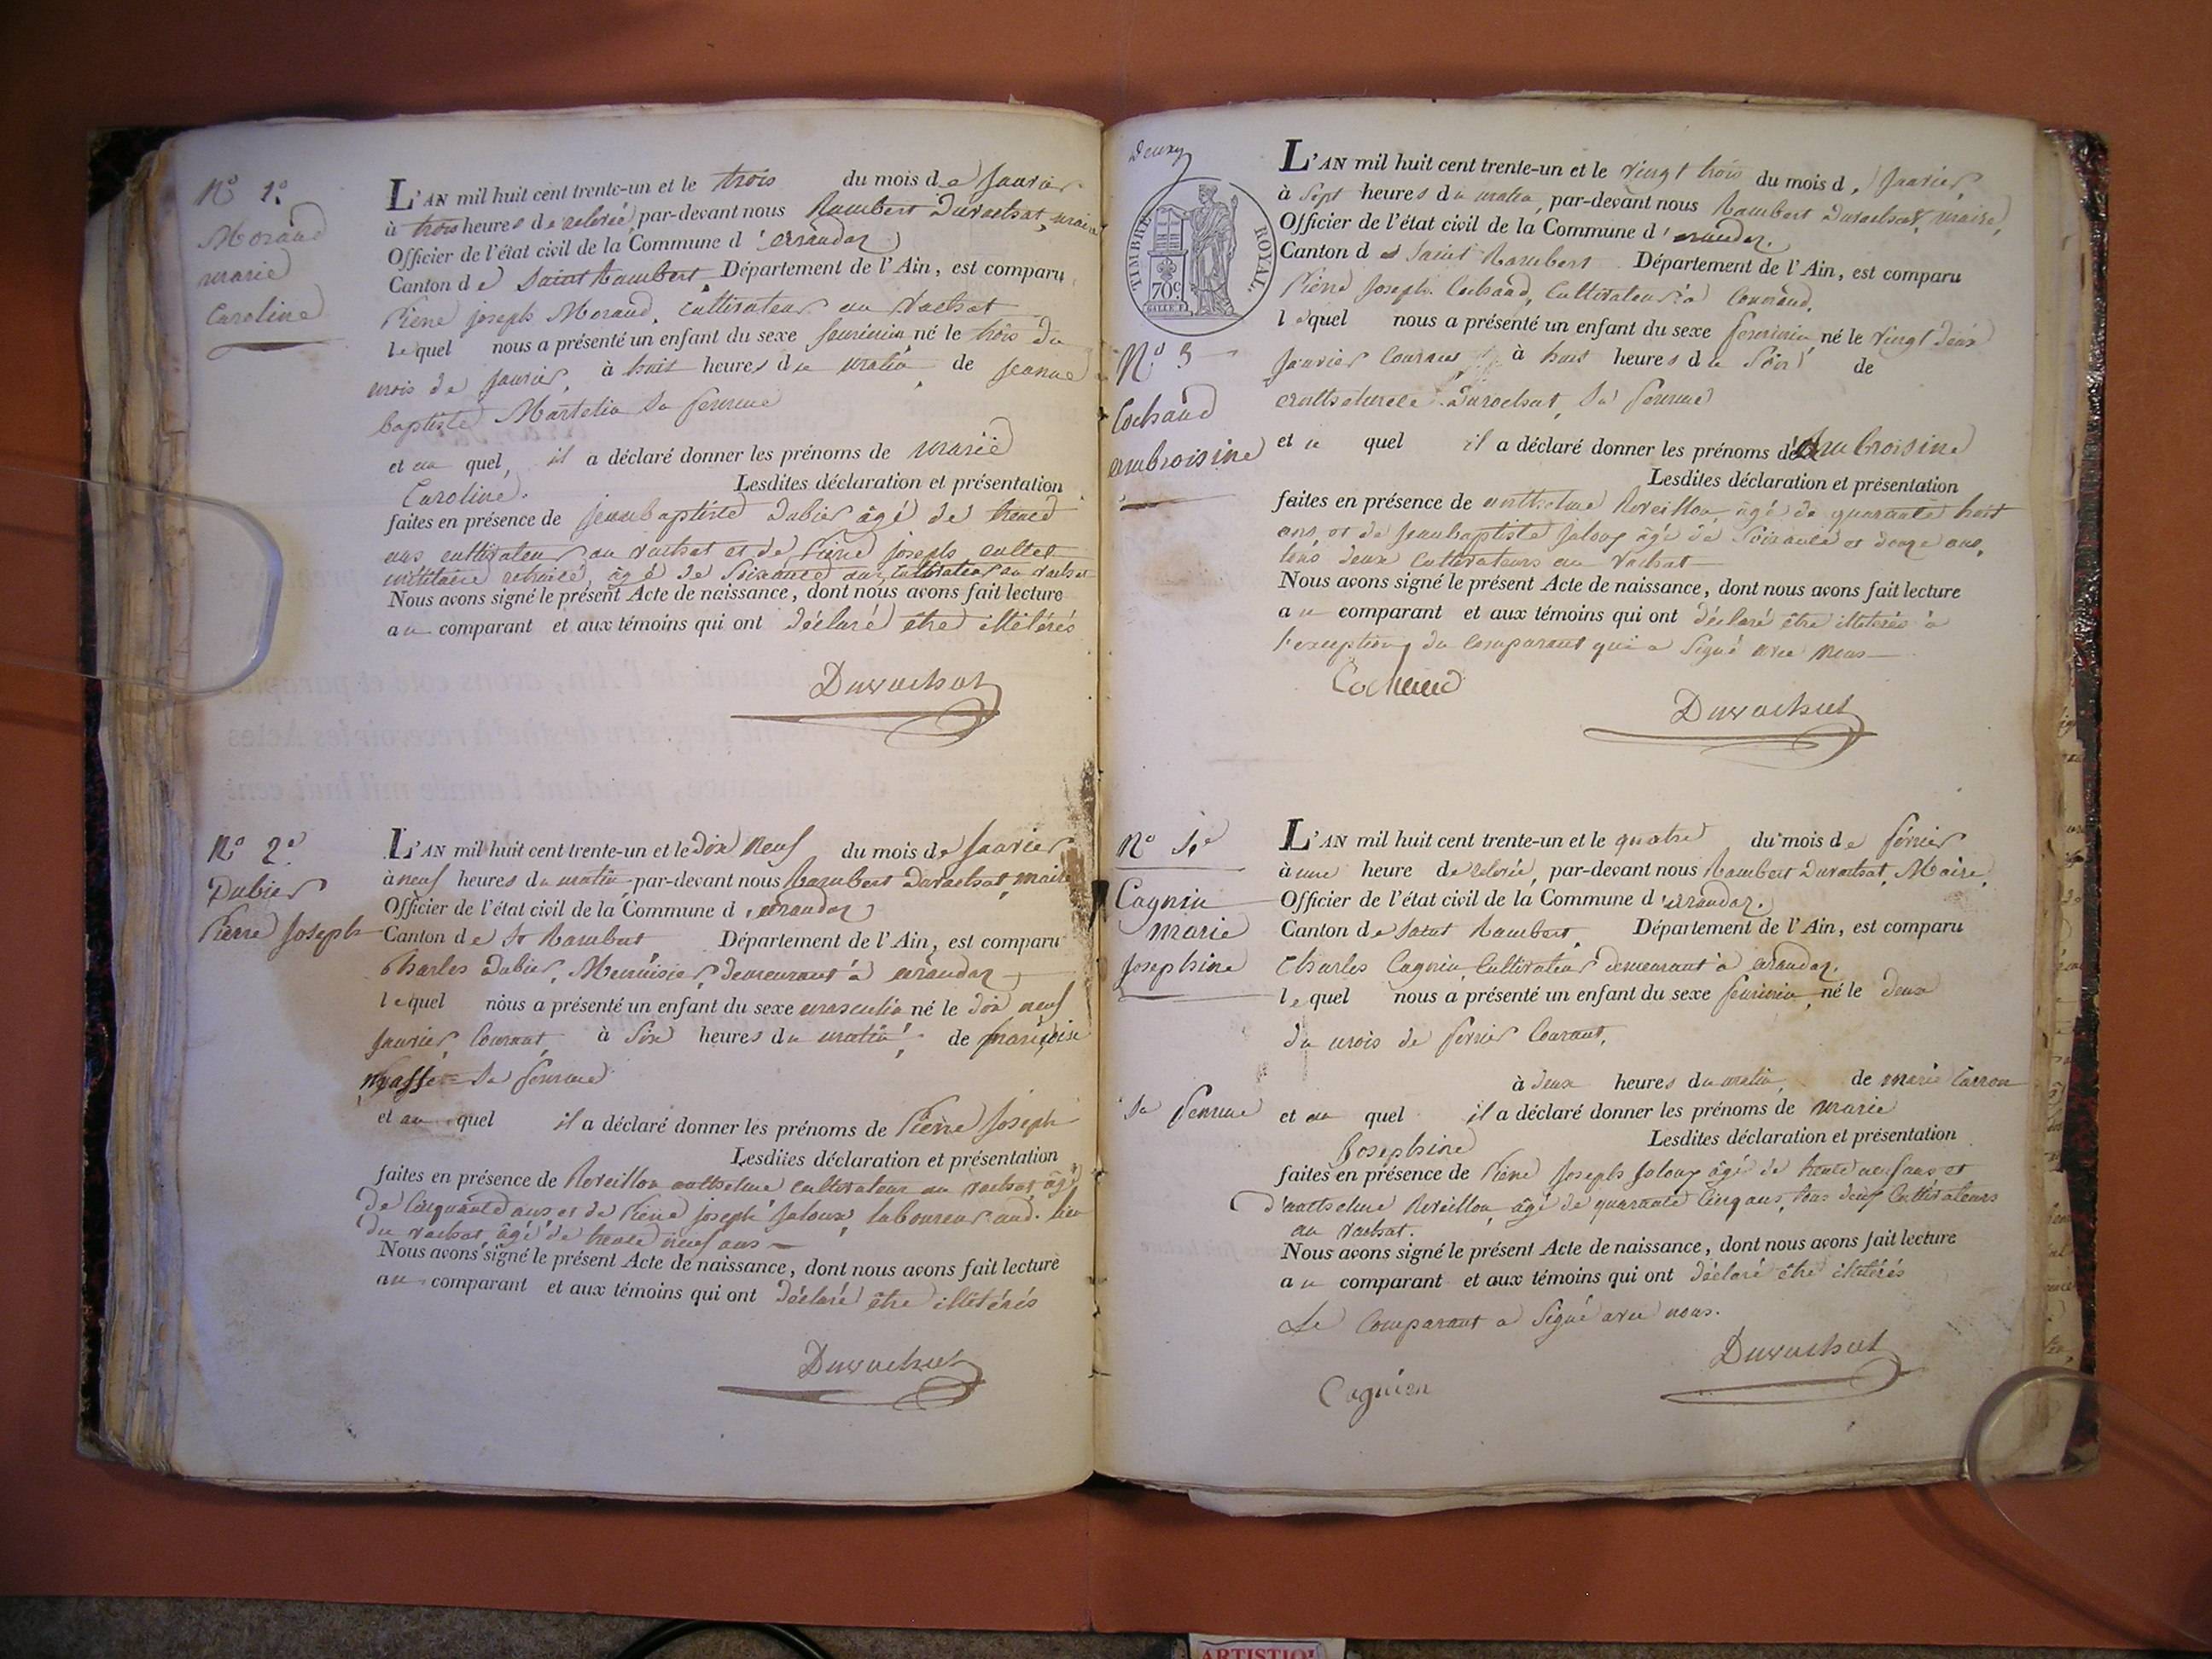 N.o 1.o
Morand
marie
Caroline
L'AN mil huit cent trente-un et le trois du mois de Janvier
à trois heures de relevée, par-devant nous Rambert Duvachat, maire
Officier de l'état civil de la Commune d'arandaz
Canton de Saint Rambert, Département de l'Ain, est comparu
Pierre joseph Morand, cultivateur au Vachat
lequel nous a présenté un enfant du sexe feminin né le trois du
mois de janvier, à huit heures du matin, de jeanne
baptiste Martelin sa femme
et au quel, il a déclaré donner les prénoms de marie
Caroline. Lesdites déclaration et présentation
faites en présence de jeanbaptiste Dubier âgé de trente
ans cultivateur au vachat et de Pierre joseph
militaire retraité, âgé de Soixante ans, cultivateur au vachat
Nous avons signé le présent Acte de naissance, dont nous avons fait lecture
au comparant et aux témoins qui ont déclaré être illitérés
Duvachat
N.o 2.o
Dubier
Pierre Joseph
L'AN mil huit cent trente-un et le dix neuf du mois de Janvier
à neuf heures du matin, par-devant nous Rambert Duvachat, maire
Officier de l'état civil de la Commune d'arandaz
Canton de St Rambert Département de l'Ain, est comparu
Charles Dubier, Menuisier, demeurant à arandaz
lequel nous a présenté un enfant du sexe masculin né le dix neuf
Janvier Courant, à Six heures du matin, de françoise
sa femme
et au quel il a déclaré donner les prénoms de Pierre Joseph
Lesdites déclaration et présentation
faites en présence de Reveillon anthelme cultivateur au vachat, âgé
de Cinquante ans et de Pierre joseph Jaloux, laboureur aud. lieu
du vachat, âgé de trente neuf ans
Nous avons signé le présent Acte de naissance, dont nous avons fait lecture
au comparant et aux témoins qui ont déclaré être illitérés
Duvachat
Deux
TIMBRE ROYAL.
70c
N.o 3
Cochand
ambroisine
L'AN mil huit cent trente-un et le vingt trois du mois d, Janvier,
à Sept heures du matin, par-devant nous Rambert Duvachat, maire,
Officier de l'état civil de la Commune d'arandaz.
Canton de Saint Rambert Département de l'Ain, est comparu
Pierre Joseph Cochand, Cultivateur à Conrand,
lequel nous a présenté un enfant du sexe feminin né le vingt deux
Janvier Courant à huit heures du Soir de
anthelmete Duvachat, sa femme
et a quel il a déclaré donner les prénoms d'ambroisine
Lesdites déclaration et présentation
faites en présence de anthelme Reveillon, âgé de quarante huit
ans, et de jeanbaptiste jaloux âgé de Soixante et douze ans,
tous deux Cultivateurs au Vachat
Nous avons signé le présent Acte de naissance, dont nous avons fait lecture
au comparant et aux témoins qui ont déclaré être illitérés à
l'exception du comparant qui a Signé avec nous
Cochand
Duvachat
N.o 4.e
Cagnin
marie
Josephine
L'AN mil huit cent trente-un et le quatre du mois de février
à une heure de relevée, par-devant nous Rambert Duvachat, Maire,
Officier de l'état civil de la Commune d'arandaz.
Canton de Saint Rambert, Département de l'Ain, est comparu
Charles Cagnin, Cultivateur demeurant à arandaz,
lequel nous a présenté un enfant du sexe feminin, né le deux
du mois de fevrier Courant,
à deux heures du matin, de marie Carron
sa femme et au quel il a déclaré donner les prénoms de marie
Josephine Lesdites déclaration et présentation
faites en présence de Pierre Joseph Jaloux âgé de trente neuf ans et
d'anthelme Reveillon, âgé de quarante Cinq ans, tous deux Cultivateurs
au vachat.
Nous avons signé le présent Acte de naissance, dont nous avons fait lecture
au comparant et aux témoins qui ont déclaré être illitérés
Le Comparant a Signé avec nous.
Duvachat
Cagnien
ARTISTIQ